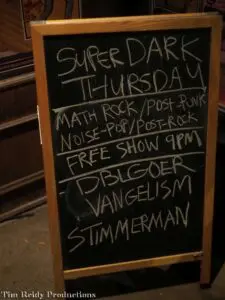 SUPER DARK
THURSDAY
MATH ROCK/POST-PUNK
NOISE-POP/POST-ROCK
FREE SHOW 9PM
DBLGOER
VANGELISM
STIMMERMAN
Tim Reidy Productions